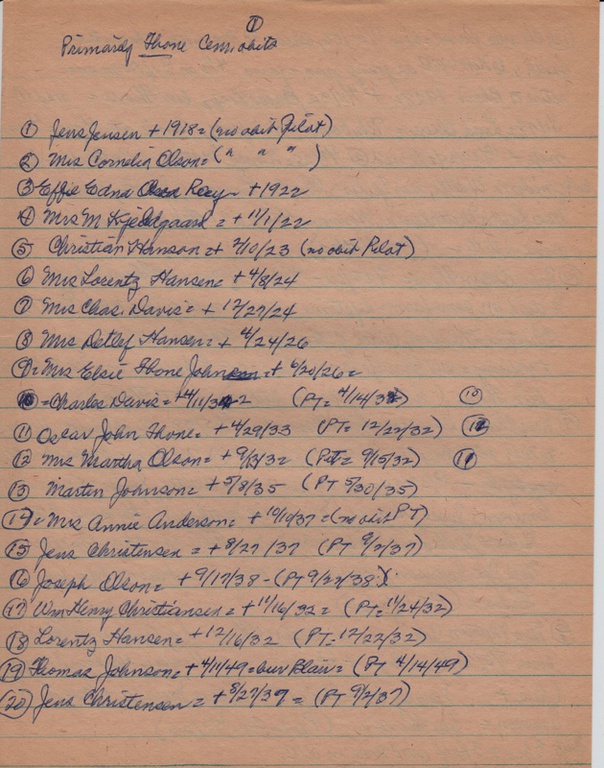 ①
Primarily Thone Cem. obits
① Jens Jensen + 1918 = (no obit Pilot)
② Mrs Cornelia Olson = ( " " " )
③ Effie Edna Roey + 1922
④ Mrs M Kjeldgaard = + 11/1/22
⑤ Christian Hanson = + 2/10/23 (no obit Pilot)
⑥ Mrs Lorentz Hansen = + 4/8/24
⑦ Mrs Chas. Davis = + 12/27/24
⑧ Mrs Detlef Hansen = + 4/24/26
⑨ = Mrs Elsie Thone Johnson = + 6/20/26 =
⑩ = Charles Davis = + 4/11/32 (PT = 4/14/32) ⑩
⑪ Oscar John Thone = + 4/29/33 (PT = 12/22/32) ⑫
⑫ Mrs Martha Olson = + 9/13/32 (PT = 9/15/32) ⑪
⑬ Martin Johnson = + 5/8/35 (PT 5/30/35)
⑭ = Mrs Annie Anderson = + 10/10/37 = (no obit PT)
⑮ Jens Christensen = + 8/27/37 (PT 9/2/37)
⑯ Joseph Olson = + 9/17/38 - (PT 9/22/38)
⑰ Wm Henry Christiansen = + 11/16/32 = (PT = 11/24/32)
⑱ Lorentz Hansen = + 12/16/32 (PT = 12/22/32)
⑲ Thomas Johnson = + 4/11/49 = bur Blair = (PT 4/14/49)
⑳ Jens Christensen = + 8/27/37 = (PT 9/2/37)